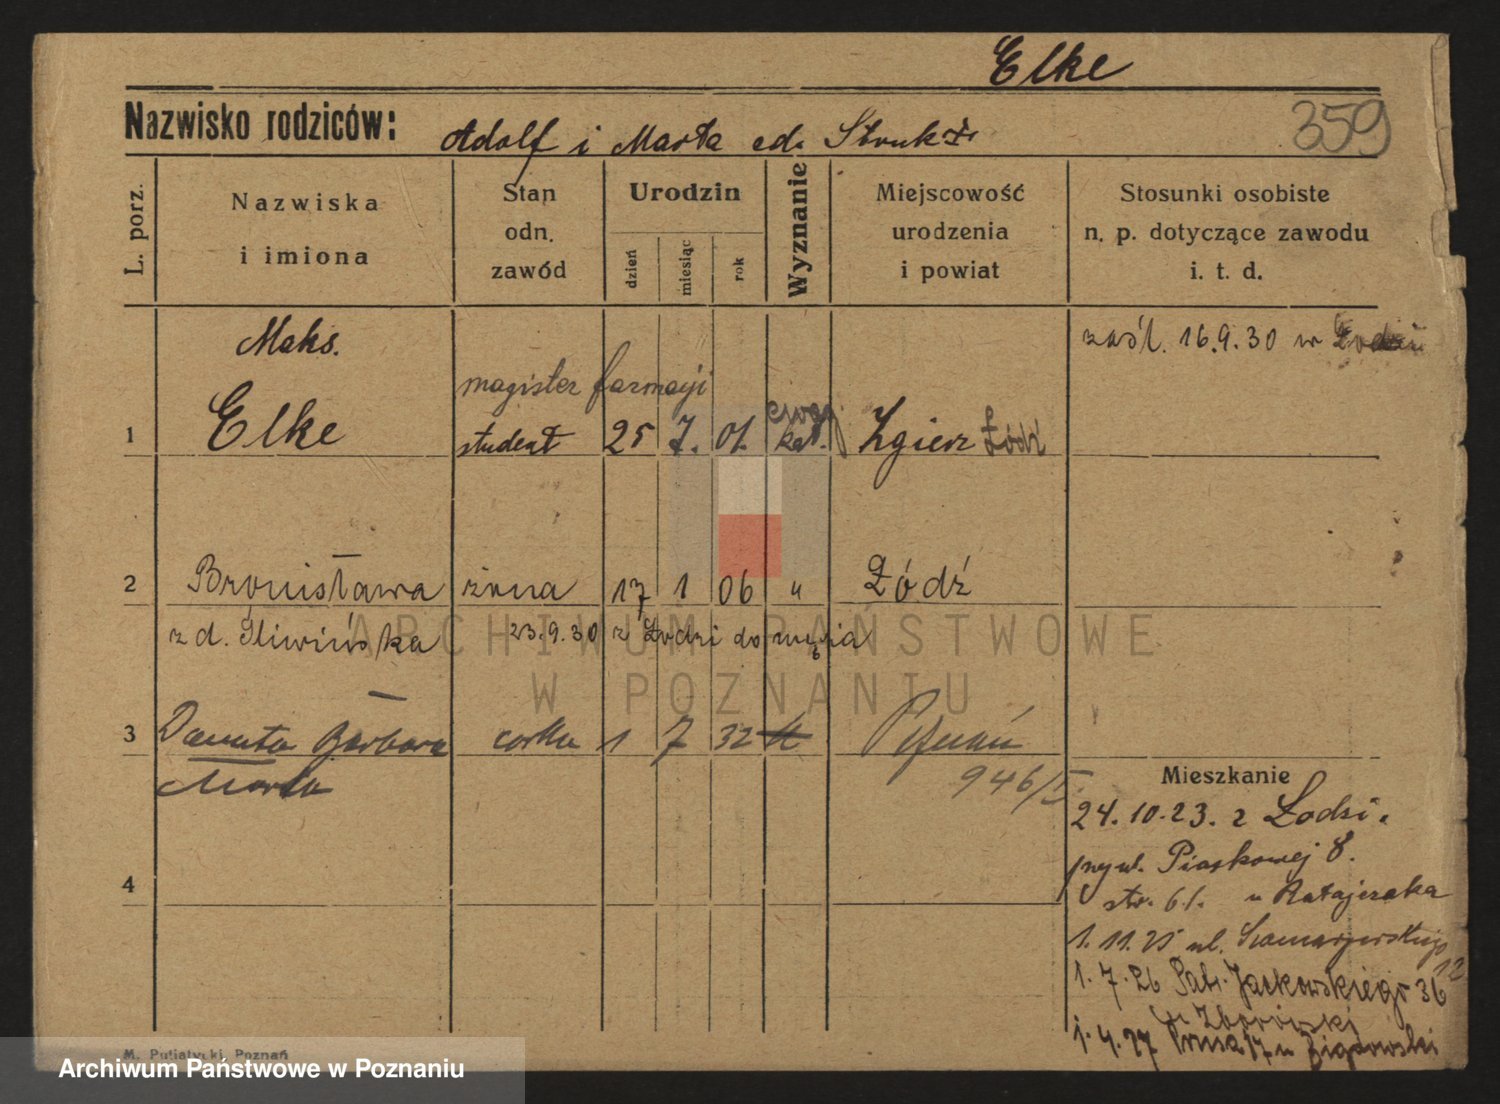 Elke
359
Nazwisko rodziców: Adolf i Marta
L. porz.
Nazwiska i imiona
Stan odn. zawód
Urodzin
dzień
miesiąc
rok
Wyznanie
Miejscowość urodzenia i powiat
Stosunki osobiste n. p. dotyczące zawodu i. t. d.
Maks.
zaśl. 16.9.30 w Łodzi
magister farmacji
ewag.
1 Elke student 25 7. 01. kat. Zgierz Łódź
2 Bronisława żona 17 1 06 " Łódź
z d. Śliwińska 23.9.30 z Łodzi do męża
3 Danuta Barbara corka 1 7 32 Poznań
Marta 946/
Mieszkanie
24.10.23. z Łodzi.
przy ul. Piaskowej 8.
str. 61. u Ratajczaka
1.11.25 ul. 12
1.7.26 Jackowskiego 36
u Zborowski
1.4.27 Prusa 17 u
4
M. Putiatycki, Poznań
ARCHIWUM PAŃSTWOWE
W POZNANIU
Archiwum Państwowe w Poznaniu